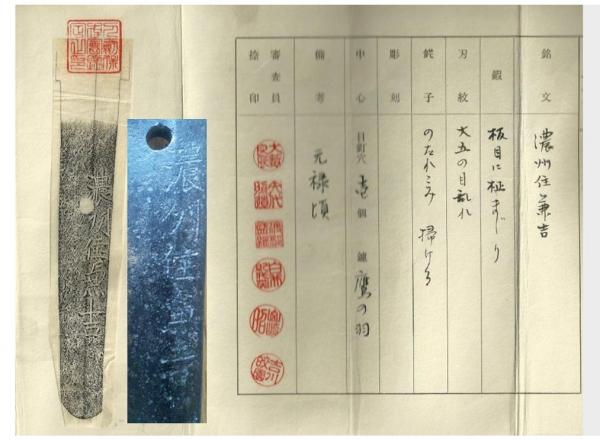 銘文 濃州住兼吉
鍜 板目に柾まじり
刃紋 大五の目乱れ
鋩子 のたれこみ 掃ける
彫刻
中心 目釘穴 壱個 鑢 鷹の羽
備考 元禄頃
審査員
捺印
濃州住兼吉
濃州住兼吉